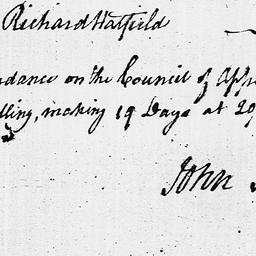 Richard Hatfield
ndance on the Council of App
lling, making 19 Days at 20
John